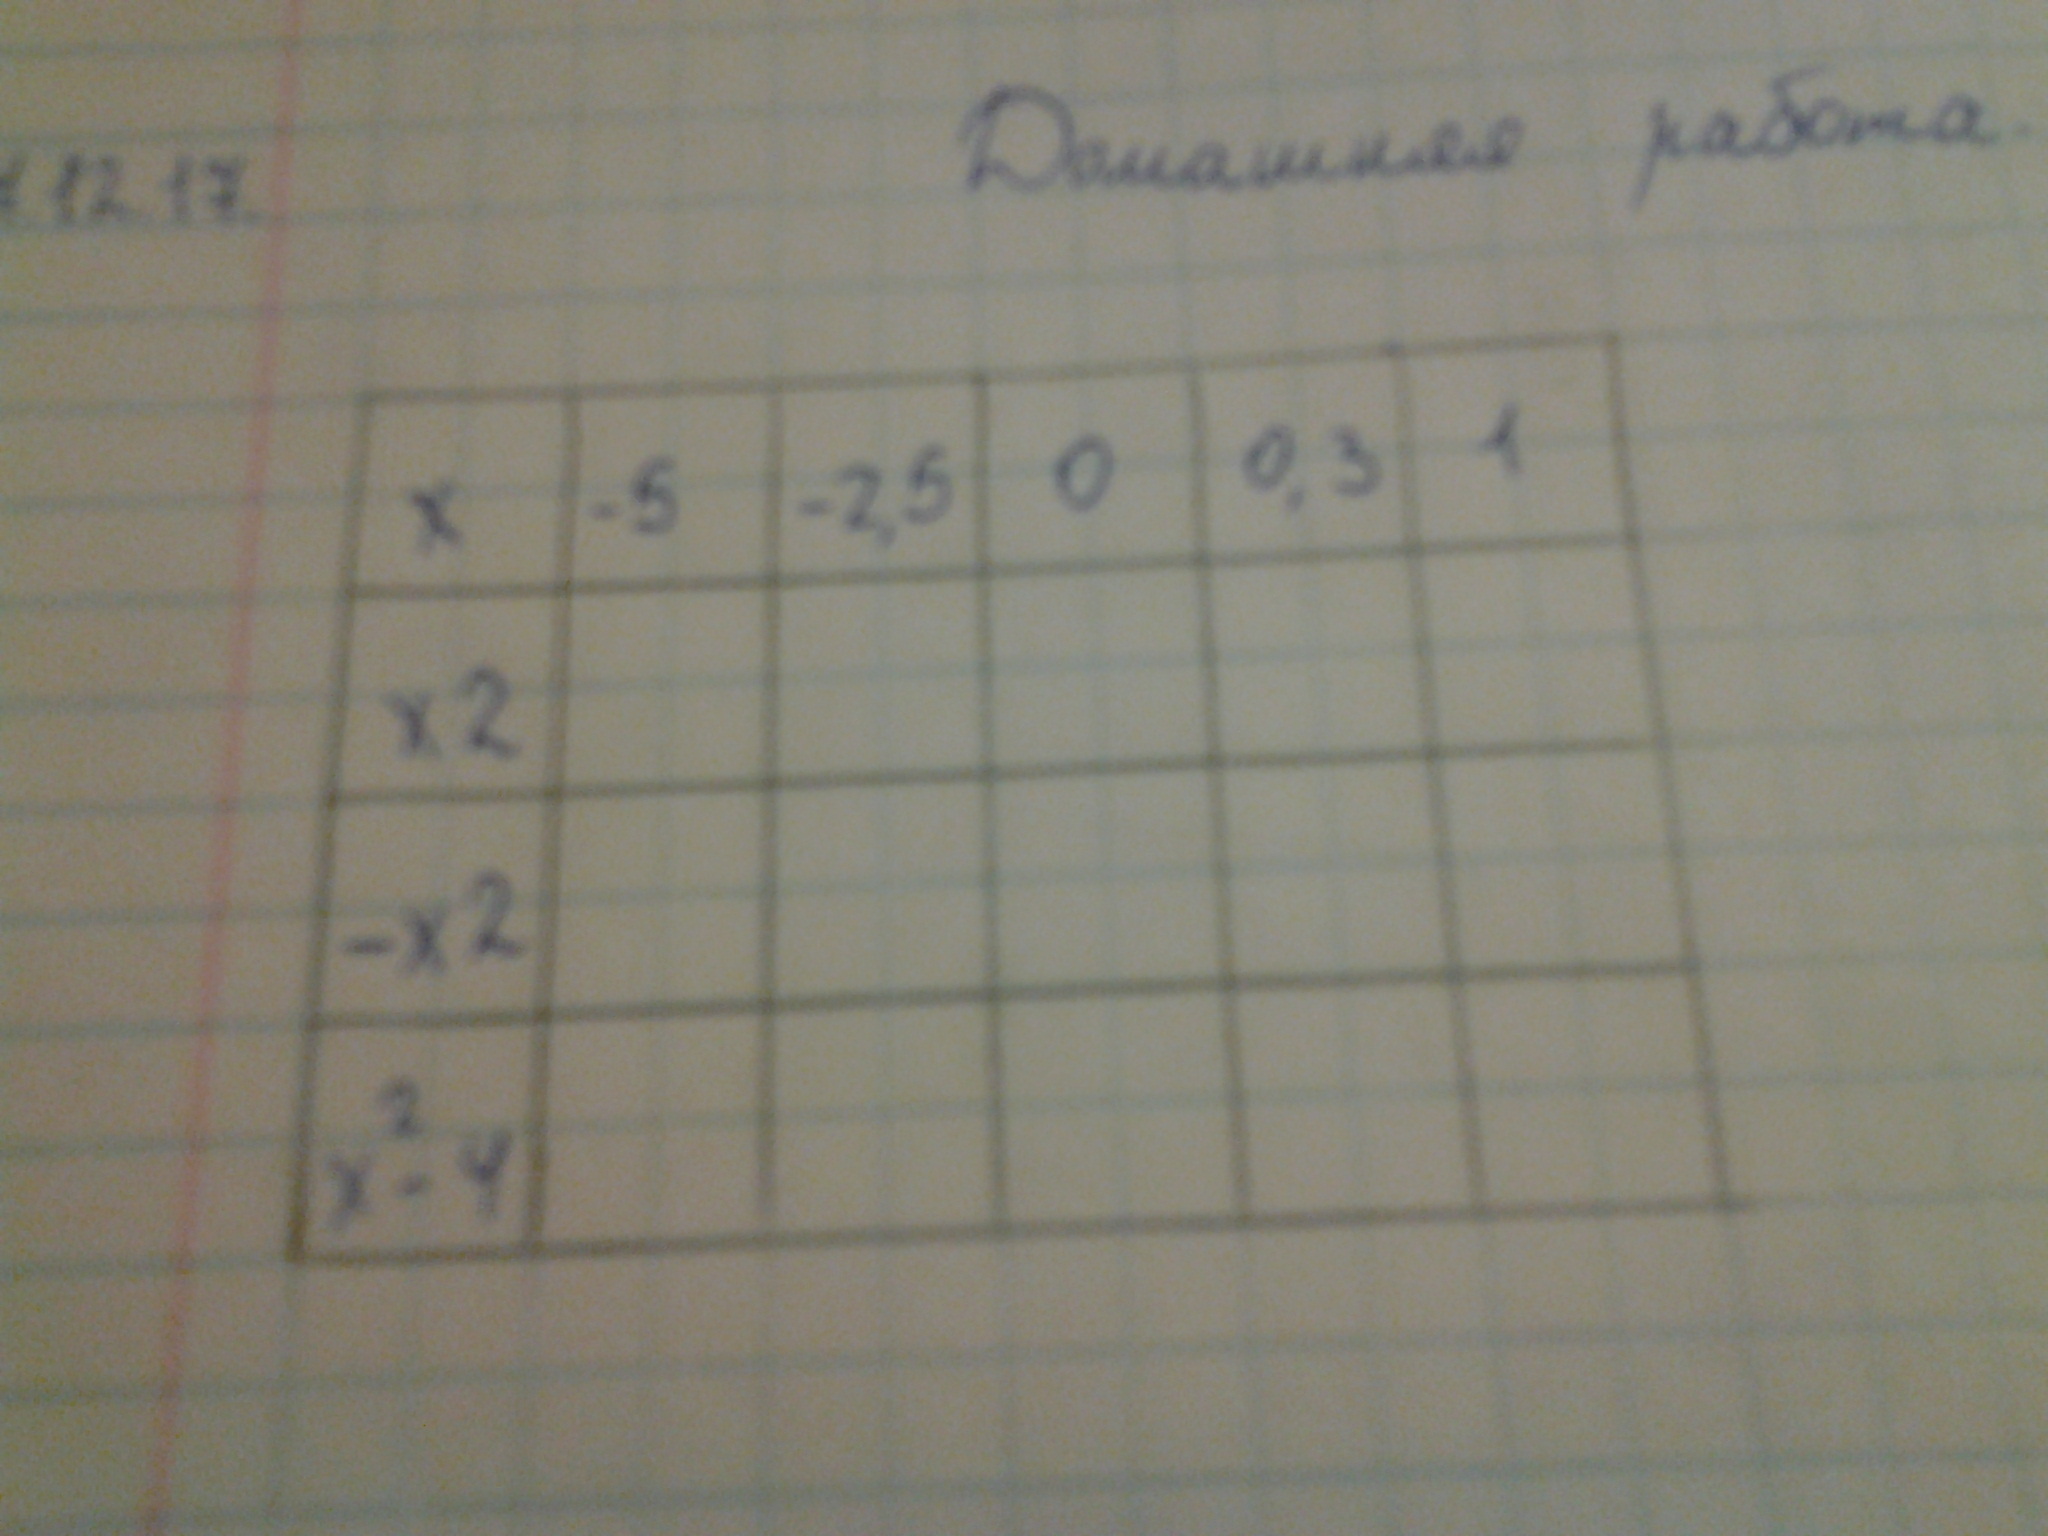 12 17
Домашняя работа.
x -5 -2,5 0 0,3 1
x2
-x2
x² - 4